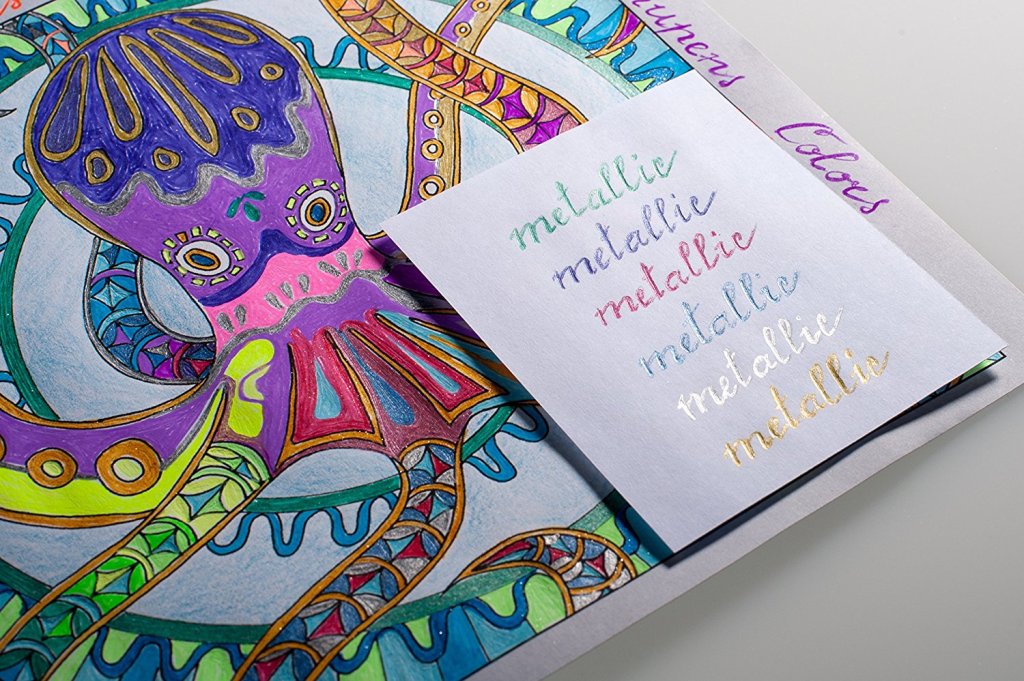 Colors
metallic
metallic
metallic
metallic
metallic
metallic